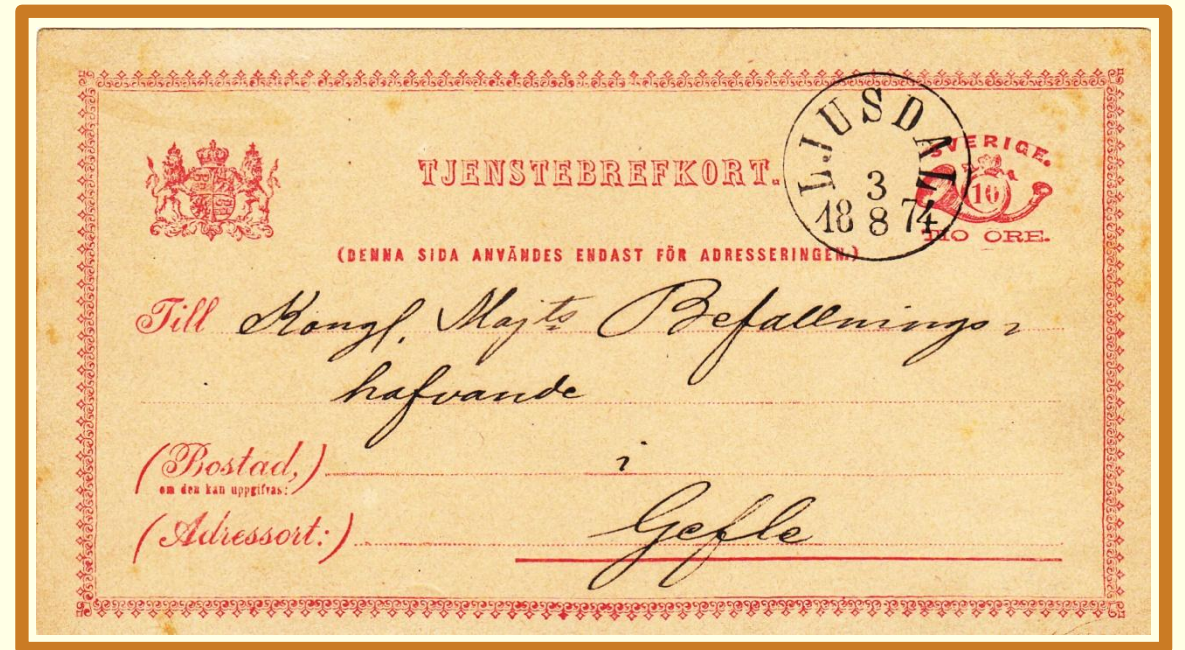 TJENSTEBREFKORT.
LJUSDAL
3
18 8 74
SVERIGE.
10
TIO ÖRE.
(DENNA SIDA ANVÄNDES ENDAST FÖR ADRESSERINGEN.)
Till Kongl. Majts Befallnings-
hafvande
(Bostad,) i
om den kan uppgifvas:
(Adressort:) Gefle